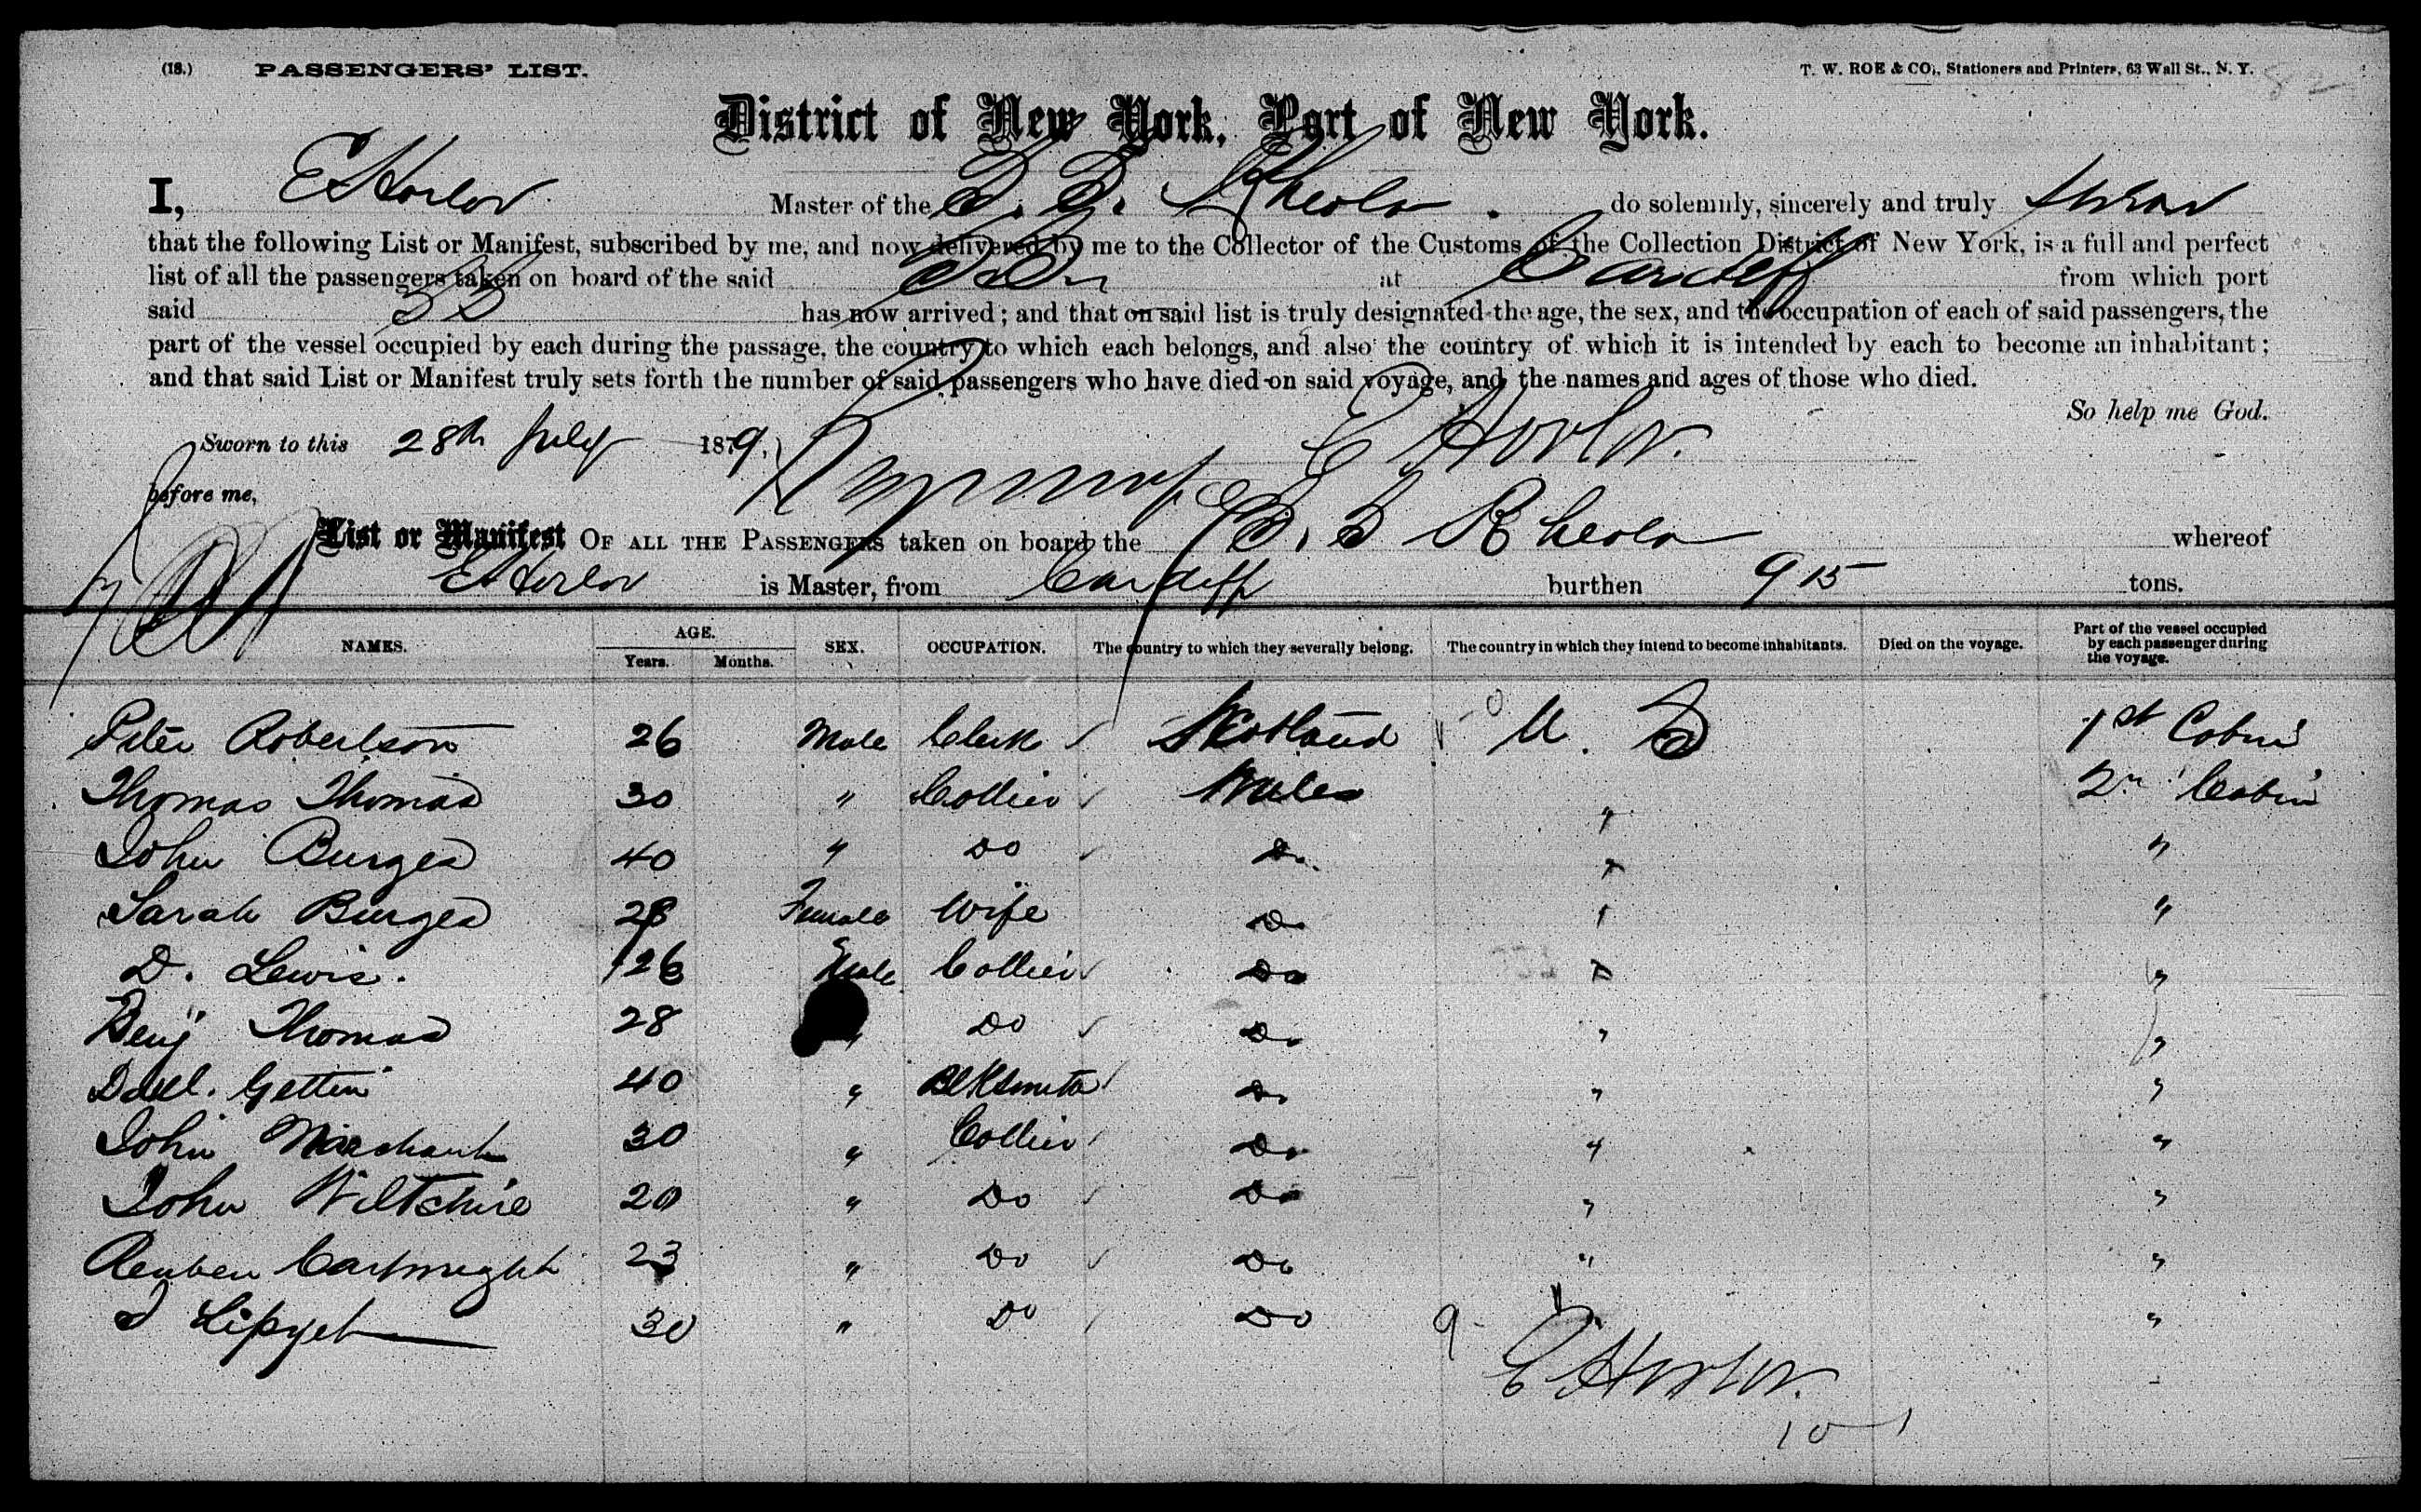 (18.) PASSENGERS' LIST. T. W. ROE & CO., Stationers and Printers, 63 Wall St., N. Y. 82
District of New York, Port of New York.
I, E Horlor Master of the S. S. Rheola. do solemnly, sincerely and truly swear
that the following List or Manifest, subscribed by me, and now delivered by me to the Collector of the Customs of the Collection District of New York, is a full and perfect
list of all the passengers taken on board of the said SS at Cardiff from which port
said SS has now arrived; and that on said list is truly designated the age, the sex, and the occupation of each of said passengers, the
part of the vessel occupied by each during the passage, the country to which each belongs, and also the country of which it is intended by each to become an inhabitant;
and that said List or Manifest truly sets forth the number of said passengers who have died on said voyage, and the names and ages of those who died.
So help me God.
Sworn to this 28th July 1879. E Horlor.
before me,
List or Manifest OF ALL THE PASSENGERS taken on board the S. S Rheola whereof
E Horlor is Master, from Cardiff burthen 915 tons.
NAMES. AGE. Years. Months. SEX. OCCUPATION. The country to which they severally belong. The country in which they intend to become inhabitants. Died on the voyage. Part of the vessel occupied by each passenger during the voyage.
Peter Robertson 26 Male Clerk Scotland U. S 1st Cabin
Thomas Thomas 30 " Collier Wales " 2n Cabin
John Burges 40 " Do Do " "
Sarah Burges 28 Female Wife Do " "
D. Lewis. 26 Male Collier Do " "
Benj Thomas 28 " Do Do " "
Danl. Gettin 40 " Blksmith Do " "
John Marchant 30 " Collier Do " "
John Wiltshire 20 " Do Do " "
Reuben Cartwright 23 " Do Do " "
30 " Do Do "
9
E Horlor.
10 1